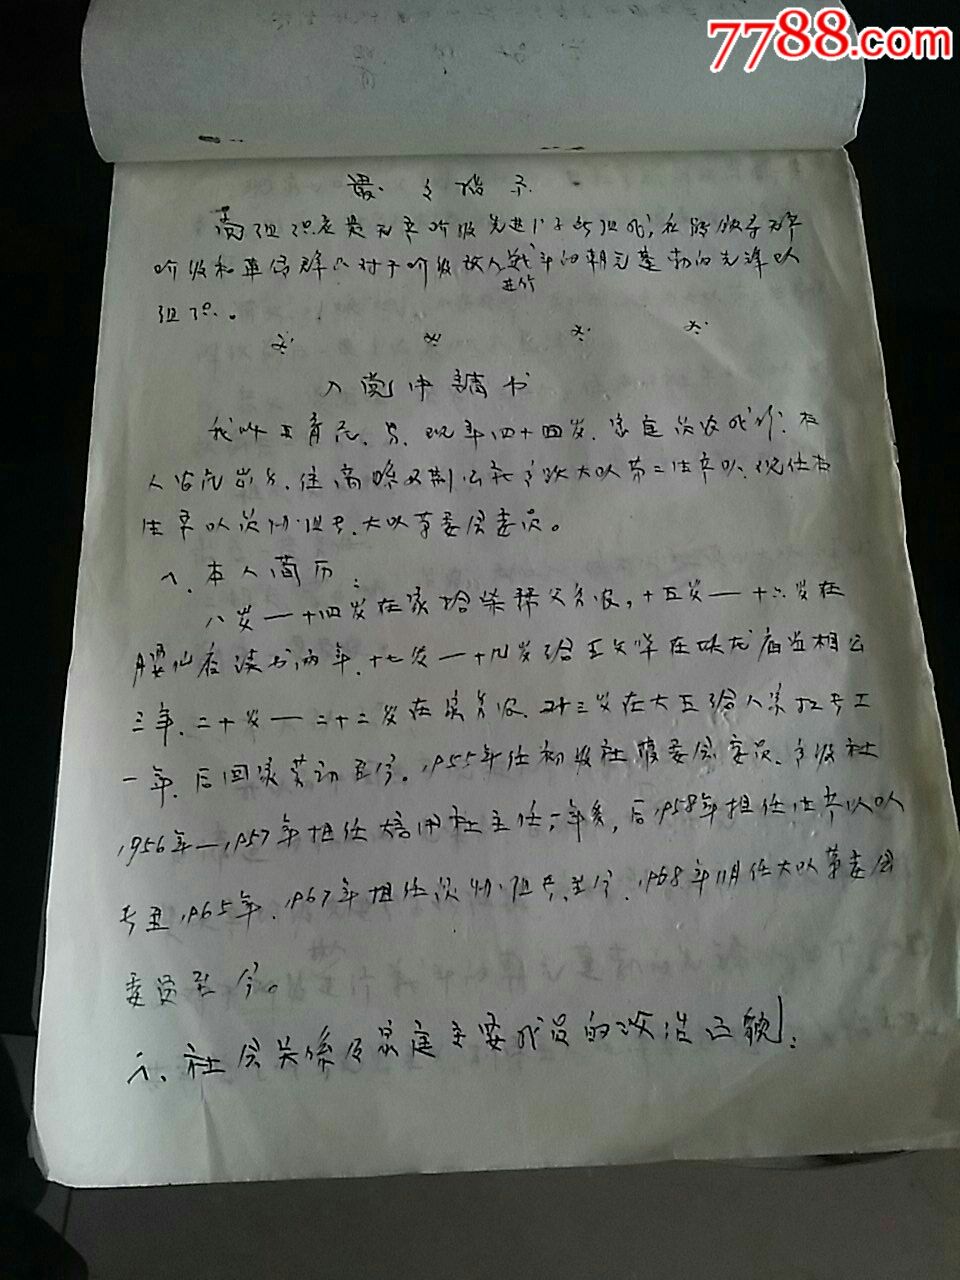 7788.com
最高指示
党组织应是无产阶级先进分子所组成，应能领导无产
阶级和革命群众对于阶级敌人进行战斗的朝气蓬勃的先锋队
组织。
入党申请书
我叫王育民、男、现年四十四岁、家庭次农成份、本
人住高陵公社大队第二生产队、现任本
生产队次份组长、大队革委会委员。
一、本人简历：
八岁—十四岁在家拾柴务农，十五岁—十六岁在
读书两年、十七岁—十九岁给在龙庙当相公
三年、二十岁—二十二岁在家务农、廿三岁在大给人家拉长工
一年、后回家劳动至今。1955年任初级社管委会委员、高级社
1956年—1957年担任信用社主任一年多，后1958年担任生产队队
长至1965年、1967年担任组长至今、1968年11月任大队革委会
委员至今。
二、社会关系及家庭主要成员的政治面貌：